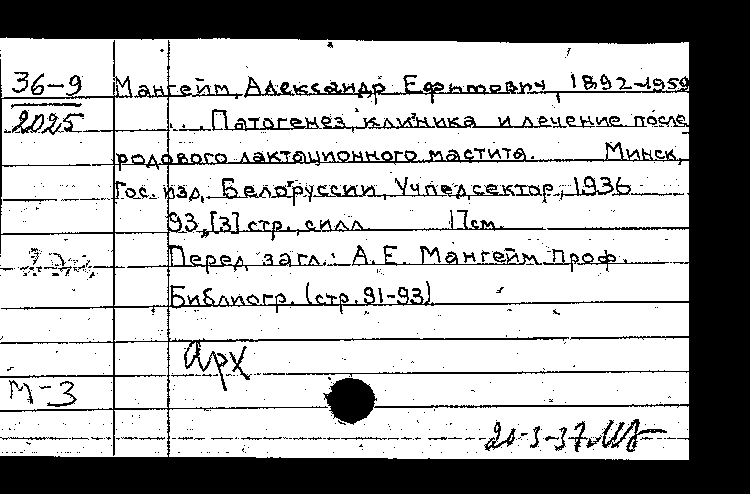 36-9
2025
Мангейм, Александр Ефимович, 1892-1959
... Патогенез, клиника и лечение после
родового лактационного мастита. Минск,
Гос. изд. Белоруссии, Учпедсектор, 1936
93, [3] стр., с илл. 17см.
Перед загл.: А. Е. Мангейм проф.
Библиогр. (стр. 91-93)
арх
М-3
20-3-37